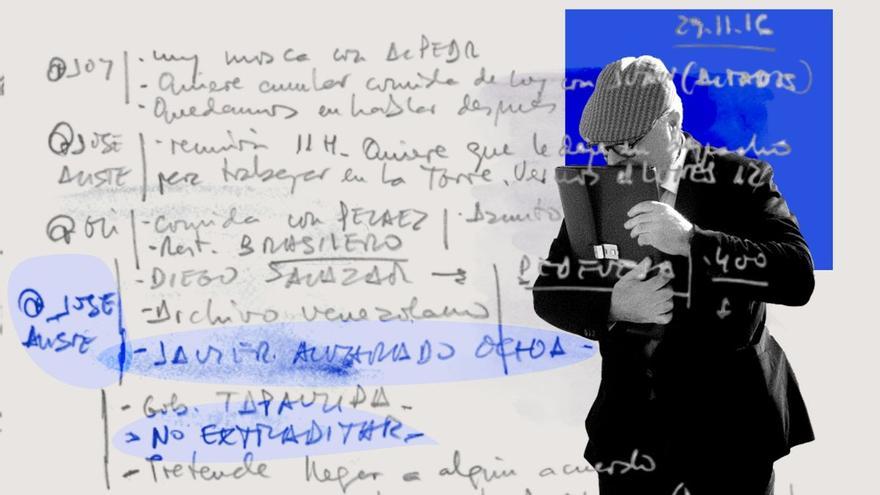 29.11.16
@JOY - muy mosca con
- Quiere cancelar comida de hoy con JUAN (
- Quedamos en hablar después
@JOSE - reunión 11H. Quiere que le dejen un despacho
ALISTE para trabajar en la Torre. Vernos el LUNES 12
- comida con PELAEZ - Asunto
- Rest. BRASILERO
- DIEGO SALAZAR → 400
@ JOSE - Archivo venezolano
ALISTE
- JAVIER ALVARADO OCHOA -
- Gob.
> NO EXTRADITAR -
- Pretende llegar a algún acuerdo